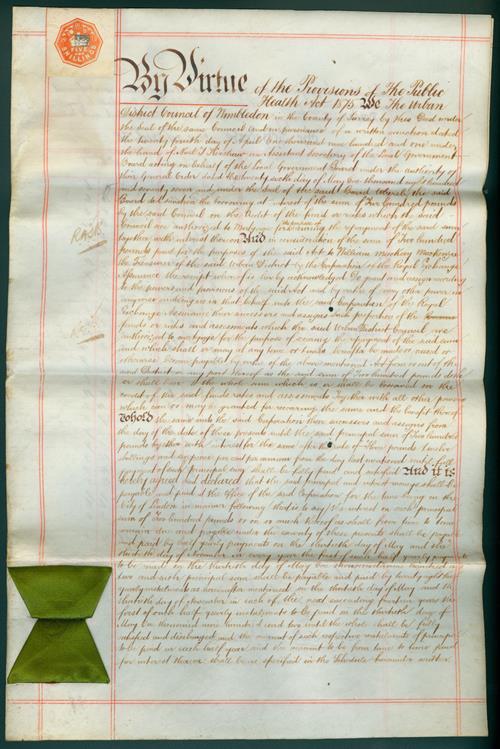 FIVE
SHILLINGS
By Virtue of the Provisions of The Public
Health Act 1875 We The Urban
District Council of Wimbledon in the County of Surrey by this Deed under
the Seal of the same Council and in pursuance of a written sanction dated
the twenty fourth day of April One thousand nine hundred and one under
the hand of an Assistant Secretary of the Local Government
Board acting on behalf of the Local Government Board under the authority of
their General Order dated the twenty sixth day of May One thousand eight hundred
and seventy seven and under the Seal of the said Board
Board to the borrowing at interest of the sum of Two hundred pounds
by the said Council on the credit of the fund or rates which the said
Council are authorized to Mortgage for the repayment of the said sum
together with interest thereon And in consideration of the sum of Two hundred
pounds paid for the purposes of the said Act to William
the Treasurer of the said Urban District by the Corporation of the Royal Exchange
Assurance the receipt whereof is hereby acknowledged Do grant and assign according
to the powers and provisions of the said Act and by virtue of any other power in
anywise enabling us in that behalf unto the said Corporation of the Royal
Exchange Assurance their successors and assigns Such proportion of the
funds or rates and assessments which the said Urban District Council are
authorized to mortgage for the purpose of securing the repayment of the said sum
and which shall or may at any time or times hereafter be made or raised or
otherwise become payable by and of the
said District or any part thereof as the said sum of Two hundred pounds doth
or shall bear to the whole sum which is or shall be borrowed on the
credit of the said funds rates and assessments together with all other powers
which can or may be granted for securing the same and the benefit thereof
To hold the same unto the said Corporation their successors and assigns from
the day of the date of these presents until the said principal sum of Two hundred
pounds together with interest for the same at the rate of Three pounds twelve
shillings and six pence per cent per annum from the day last mentioned until full
payment of such principal sum shall be fully paid and satisfied And it is
hereby agreed and declared that the said principal and interest moneys shall be
payable and paid at the Office of the said Corporation for the time being in the
City of London in manner following that is to say the interest on such principal
sum of Two hundred pounds or on so much thereof as shall from time to time
remain due and payable under the security of these presents shall be paid
and paid by half yearly payments on the thirtieth day of May and the
thirtieth day of November in every year the first of such half yearly payments
to be made on the thirtieth day of May One thousand nine hundred and
two and such principal sum shall be payable and paid by
yearly instalments as hereinafter mentioned on the thirtieth day of May and the
thirtieth day of November in each of the next succeeding years the
first of such half yearly instalments to be paid on the thirtieth day of
May One thousand nine hundred and two until the whole shall be fully
repaid and discharged and the amount of such respective instalments of principal
to be paid in each half year and the amount to be from time to time paid
for interest thereon shall be specified in the Schedule hereunder written